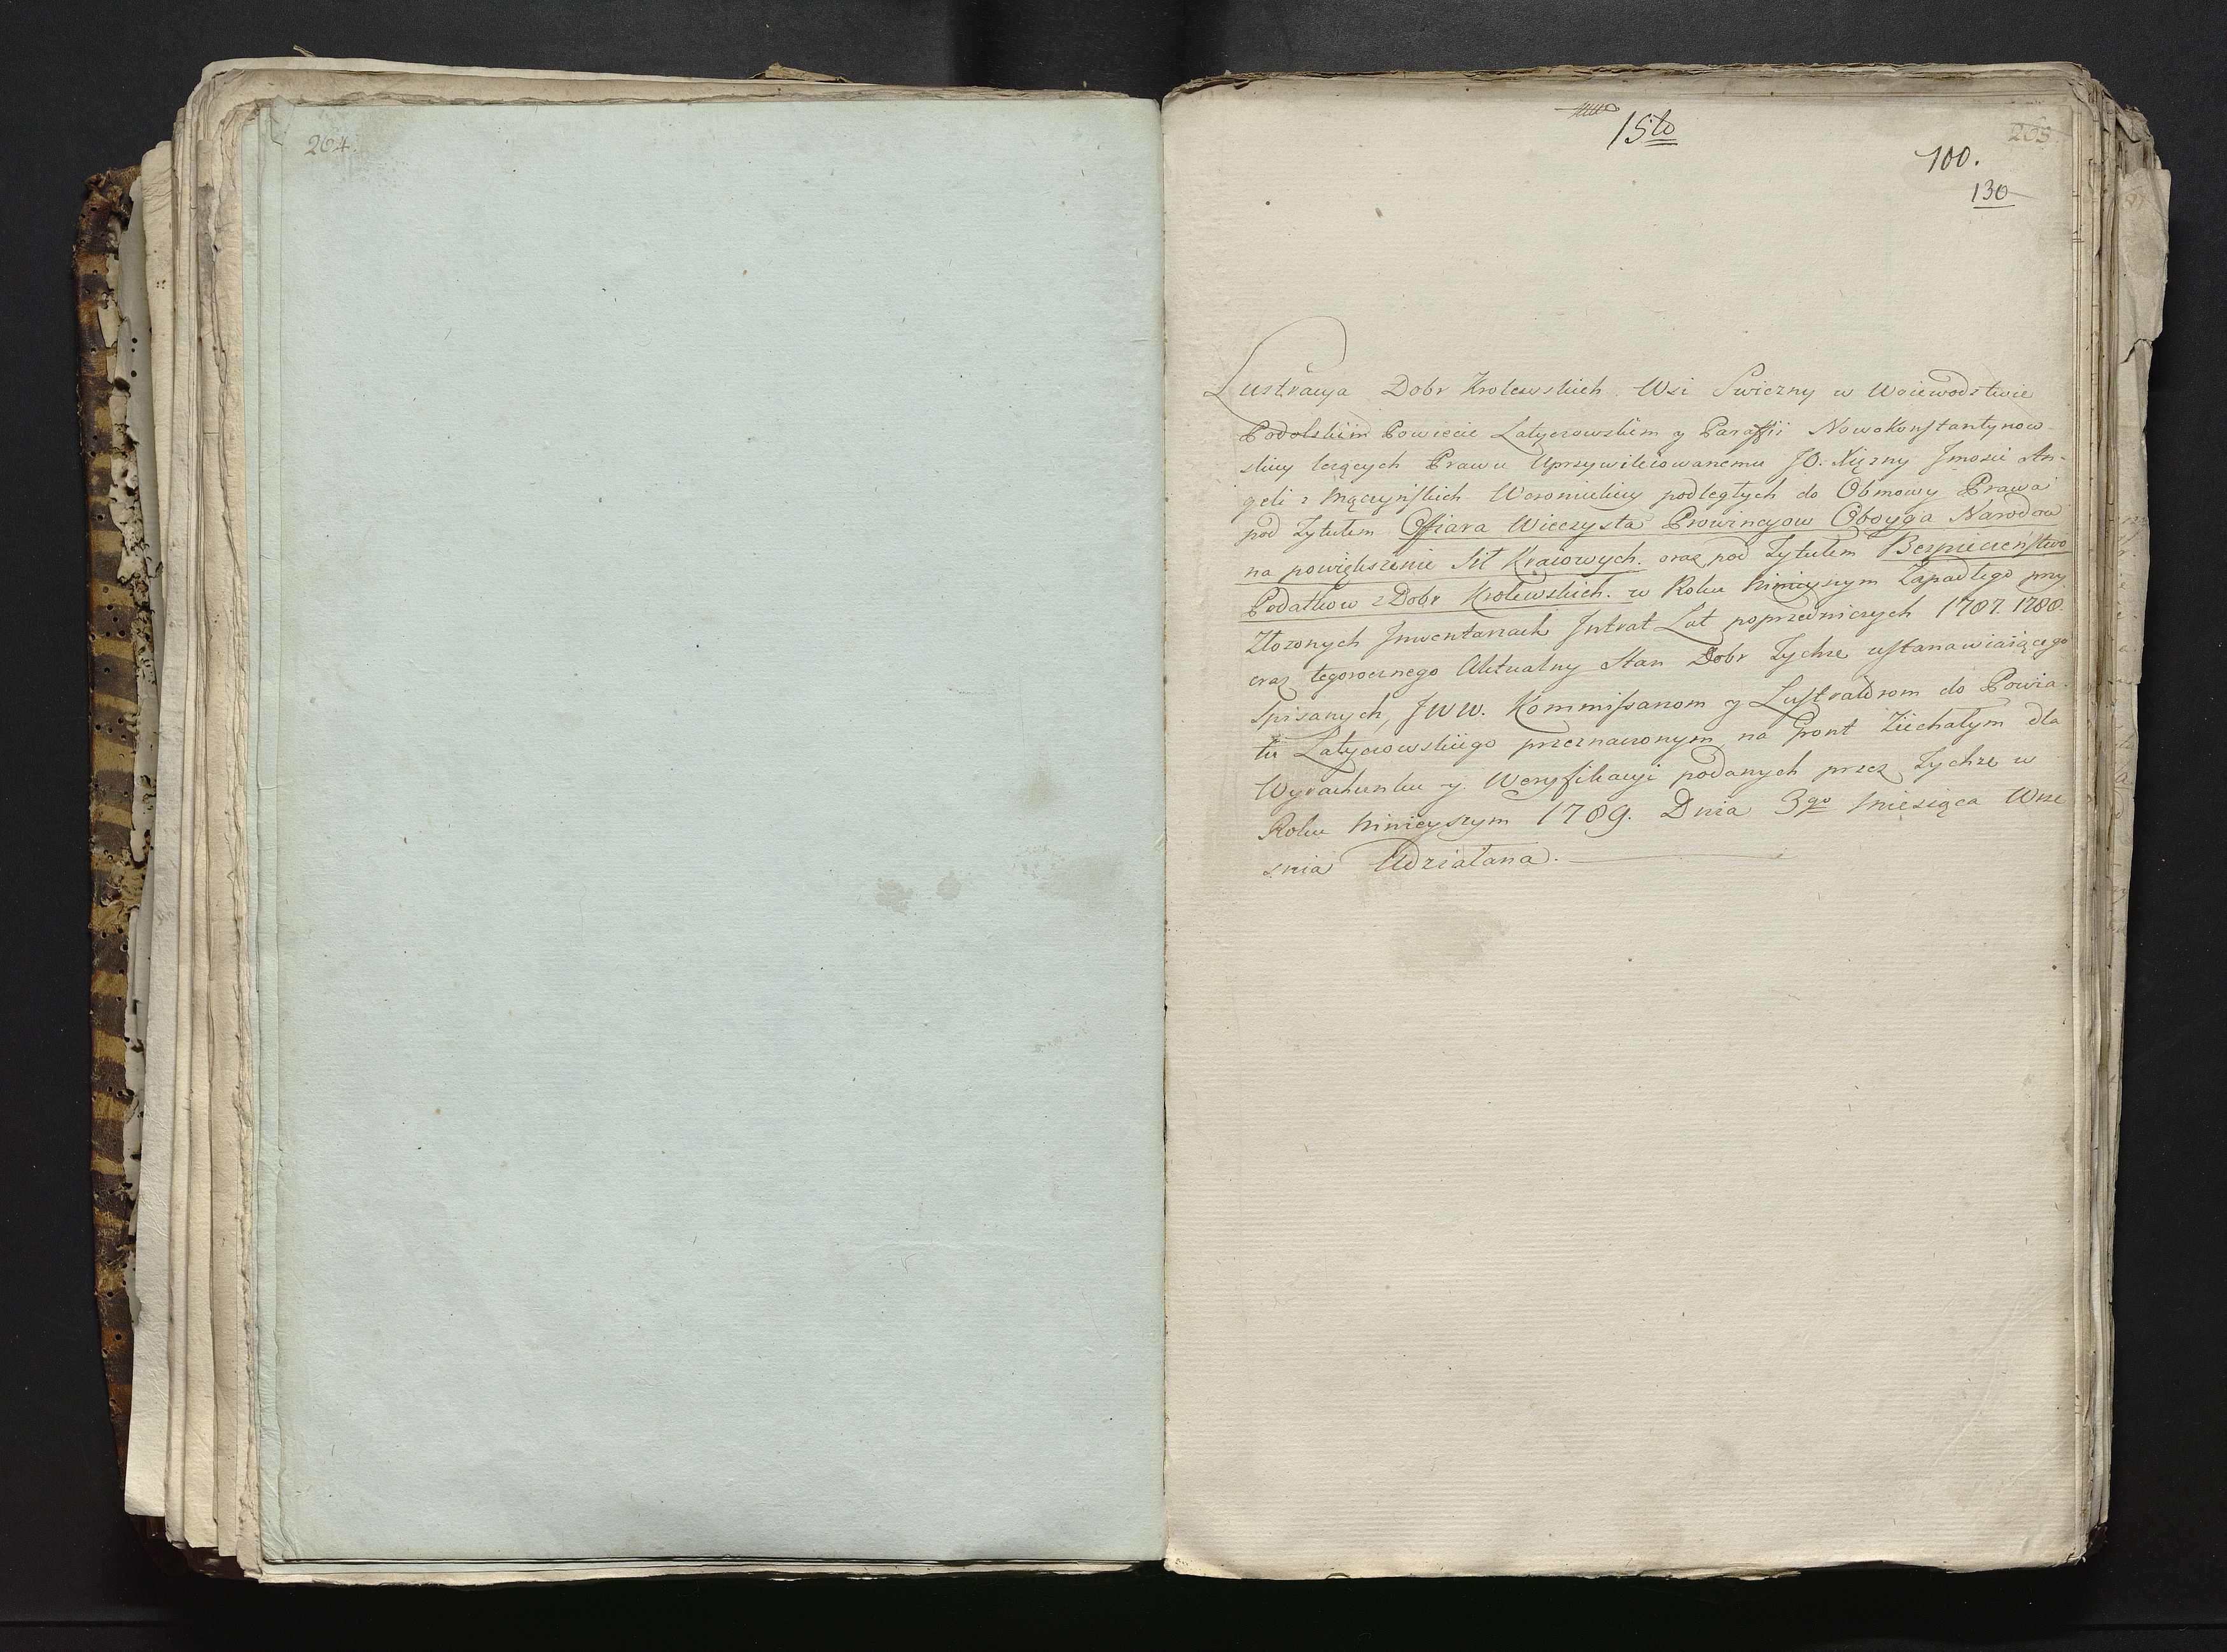 204.
15to
205
100.
130
Lustracya Dobr Krolewskich Wsi Swiczny w Woiewodstwie
Podolskim Powiecie Latyczowskim y Paraffii Nowokonstantynow-
skiey leżących Prawu Uprzywileiowanemu JO. Xiężny Jmosci An-
geli z Mączyńskich Woronieckiey podległych do Obmowy Prawa
pod Tytułem Offiara Wieczysta Prowincyow Oboyga Narodow
na powiększenie Sił Kraiowych. oraz pod Tytułem Bezpieczenstwo
Podatkow z Dobr Krolewskich. w Roku ninieyszym Zapadłego przy
Złozonych Jnwentarzach Jntrat Lat poprzedniczych 1787. 1788.
oraz tegorocznego Aktualny Stan Dobr Tychze ustanawiaiącego
Spisanych, JWW. Kommissarzom y Lustratorom do Powia-
tu Latyczowskiego przeznaczonym, na Gront Ziechałym dla
Wyrachunku y Weryfikacyi podanych przez Tychze w
Roku ninieyszym 1789. Dnia 3go Miesiąca Wrze
snia Udziałana.